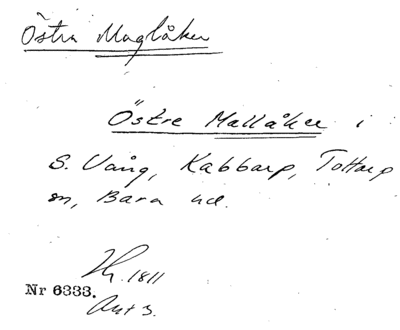 Östra Maglåker
Östre Mallåker i
S. Vång, Kabbarp, Tottarp
sn, Bara hd.
1811
Nr 6333.
Akt 3.